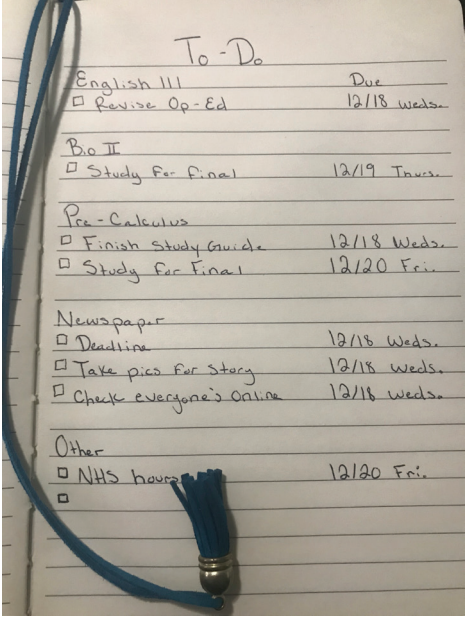 To-Do
English III Due
Revise Op-Ed 12/18 Weds.
Bio II
Study for final 12/19 Thurs.
Pre-Calculus
Finish Study Guide 12/18 Weds.
Study for Final 12/20 Fri.
Newspaper
Deadline 12/18 Weds.
Take pics for story 12/18 Weds.
Check everyone's online 12/18 Weds.
Other
NHS hours 12/20 Fri.